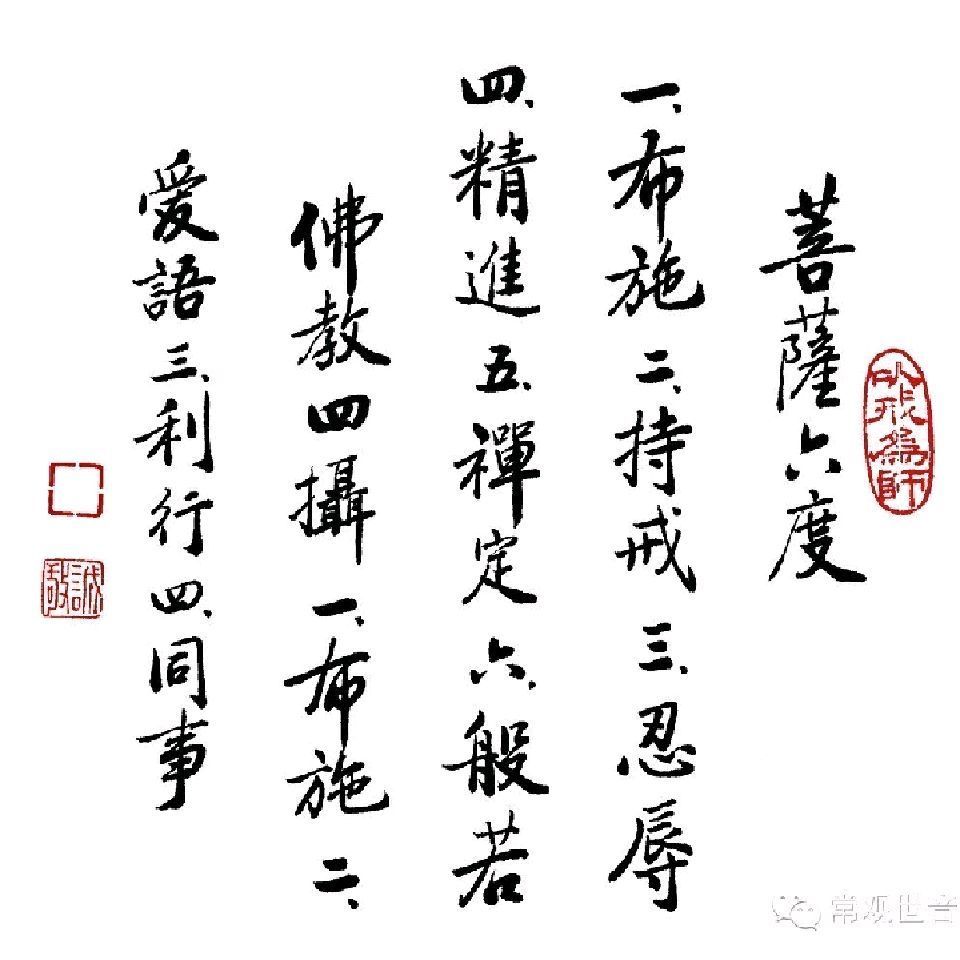 菩薩六度
以戒為師
一、布施二、持戒三、忍辱
四、精進五、禪定六、般若
佛教四攝一、布施二、
愛語三、利行四、同事
誠敬
常观世音